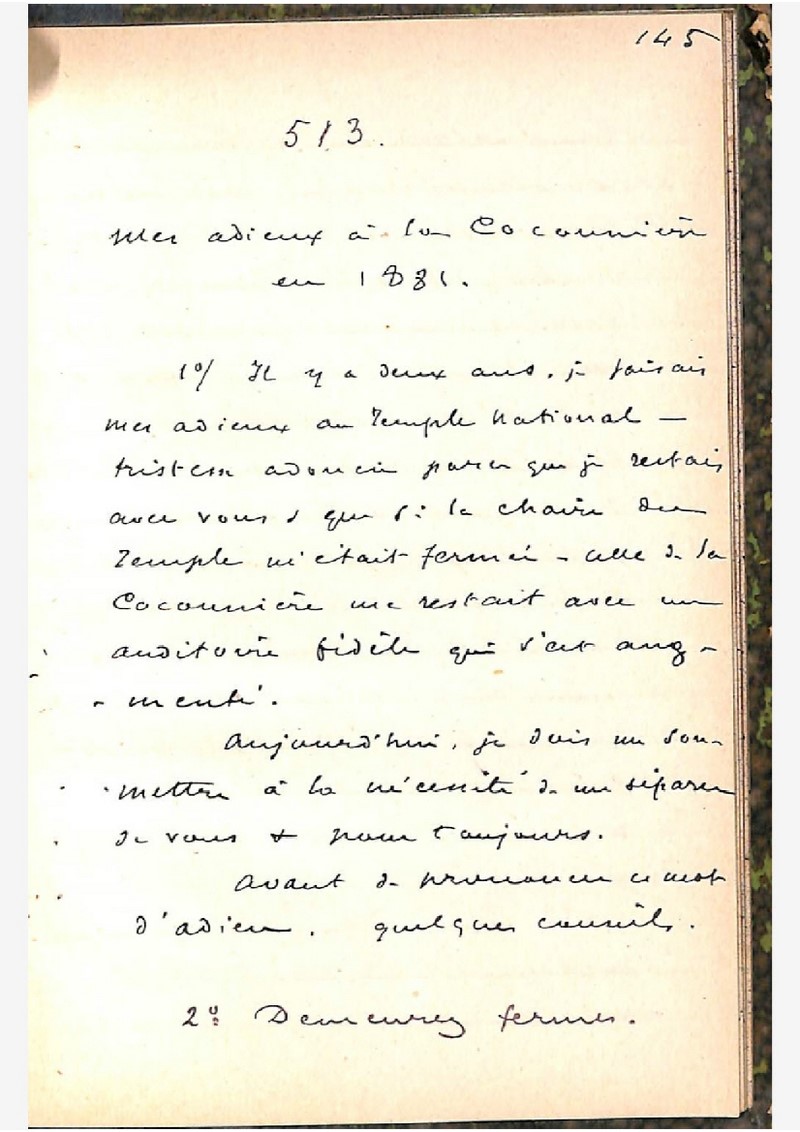 145
513.
Mes adieux à la Cocounière
en 1881.
1º/ Il y a deux ans, je faisais
mes adieux au Temple National —
tristesse adoucie parce que je restais
avec vous & que si la chaire du
Temple m'était fermée - celle de la
Cocounière me restait avec un
auditoire fidèle qui s'est aug-
- menté.
Aujourd'hui, je dois me sou-
- mettre à la nécessité de me séparer
de vous & pour toujours.
Avant de prononcer ce mot
d'adieu, quelques conseils.
2º: Demeurez fermes.